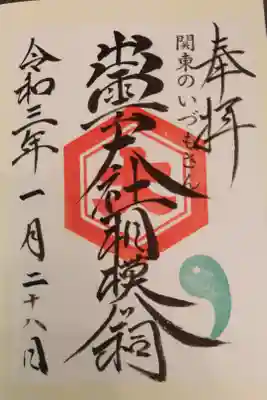 奉拝
関東のいづもさん
出雲大社相模分祠
令和三年一月二十八日